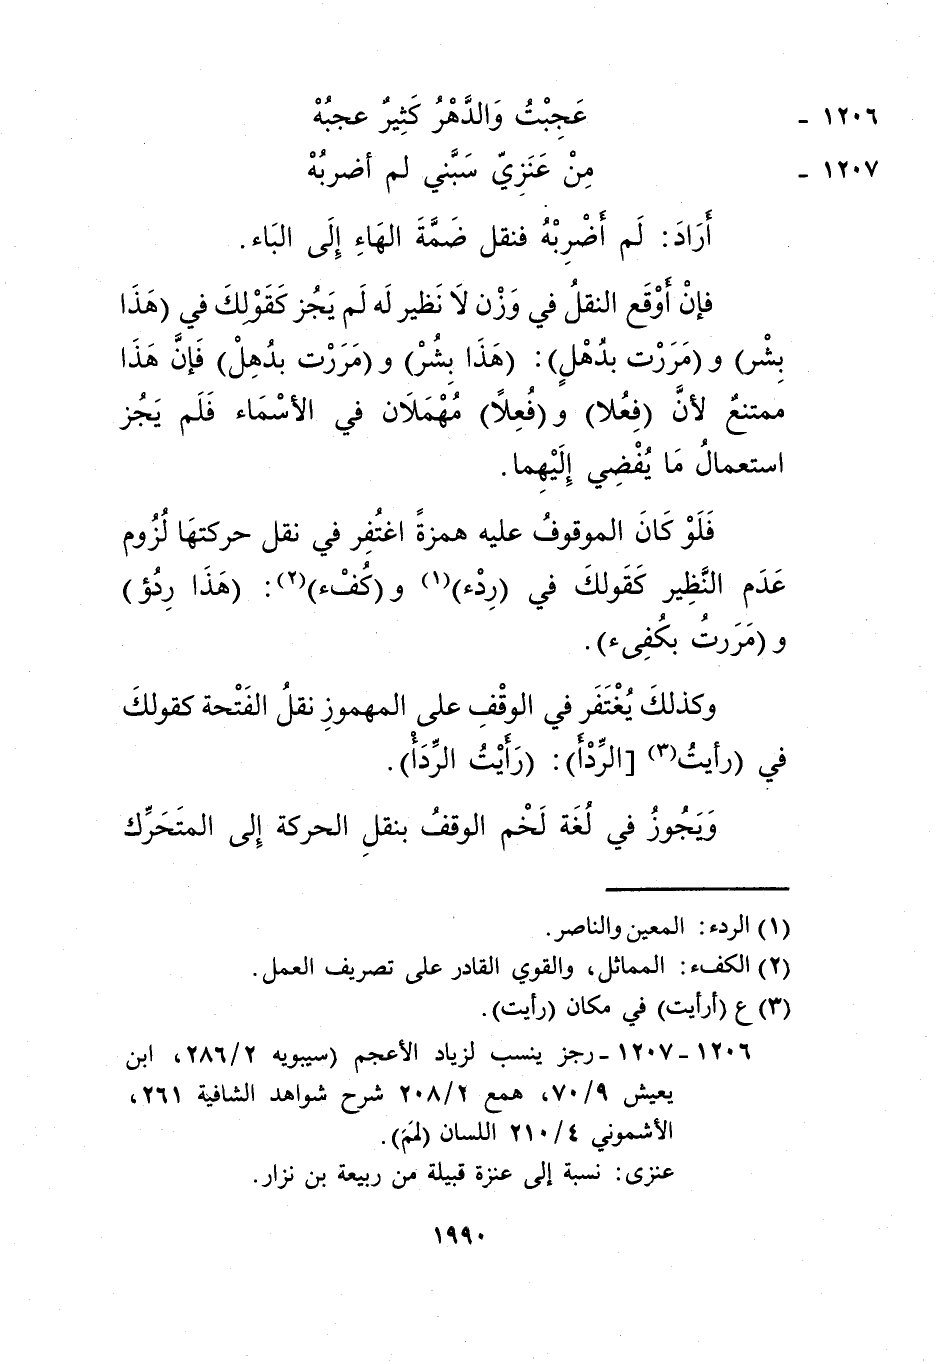 ١٢٠٦ - عَجِبْتُ وَالدَّهْرُ كَثِيرٌ عجبُهْ
١٢٠٧ - مِنْ عَنَزِيّ سَبَّني لم أضربُهْ
أَرَادَ: لَم أَضْرِبْهُ فنقل ضَمَّةَ الهَاءِ إِلَى البَاء.
فإنْ أَوْقَع النقلُ في وَزْن لَا نَظير لَه لَم يَجُز كَقَوْلِكَ في (هَذَا
بِشْر) و (مَرَرْت بدُهْلٍ): (هَذَا بِشُرْ) و (مَرَرْت بدُهِلْ) فَإنَّ هَذَا
ممتنعٌ لأنَّ (فِعُلا) و (فُعِلًا) مُهْمَلَان في الأسْمَاء فَلَم يَجُز
استعمالُ مَا يُفْضِي إِلَيْهِما.
فَلَوْ كَانَ الموقوفُ عليه همزةً اغتُفِر في نقل حركتهَا لُزُوم
عَدَم النَّظِير كَقَولكَ في (رِدْء)(١) و (كُفْء)(٢): (هَذَا رِدُؤ)
و (مَرَرتُ بكُفِىء).
وكذلكَ يُغْتَفَر في الوقْفِ على المهموزِ نقلُ الفَتْحة كقولكَ
في (رأيتُ(٣) [الرِّدْأَ): (رَأَيْتُ الرِّدَأْ).
وَيَجُوزُ في لُغَة لَخْم الوقفُ بنقلِ الحركة إِلى المتَحَرِّك
(١) الردء: المعين والناصر.
(٢) الكفء: المماثل، والقوي القادر على تصريف العمل.
(٣) ع (أرأيت) في مكان (رأيت).
١٢٠٦ - ١٢٠٧ - رجز ينسب لزياد الأعجم (سيبويه ٢/ ٢٨٦، ابن
يعيش ٩/ ٧٠، همع ٢/ ٢٠٨ شرح شواهد الشافية ٢٦١،
الأشموني ٤/ ٢١٠ اللسان (لمَمَ).
عنزى: نسبة إلى عنزة قبيلة من ربيعة بن نزار.
١٩٩٠